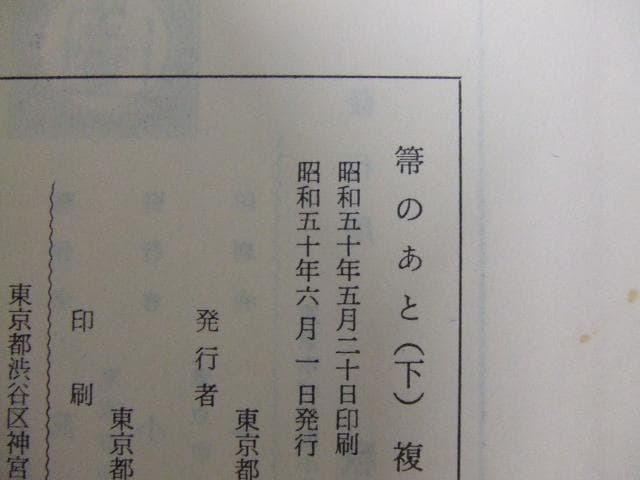 箒のあと（下） 複
昭和五十年五月二十日印刷
昭和五十年六月一日発行
東京都
発行者
東京都
印刷
東京都渋谷区神宮